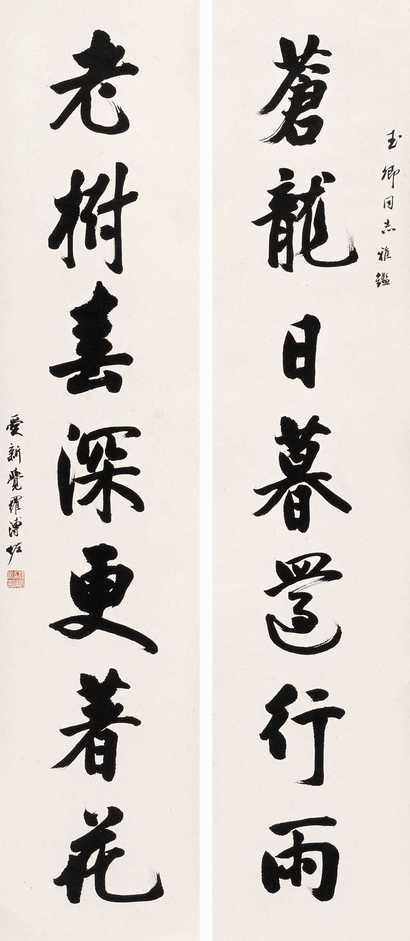 玉卿同志雅鑑
蒼龍日暮還行雨
老樹春深更著花
愛新覺羅溥佐